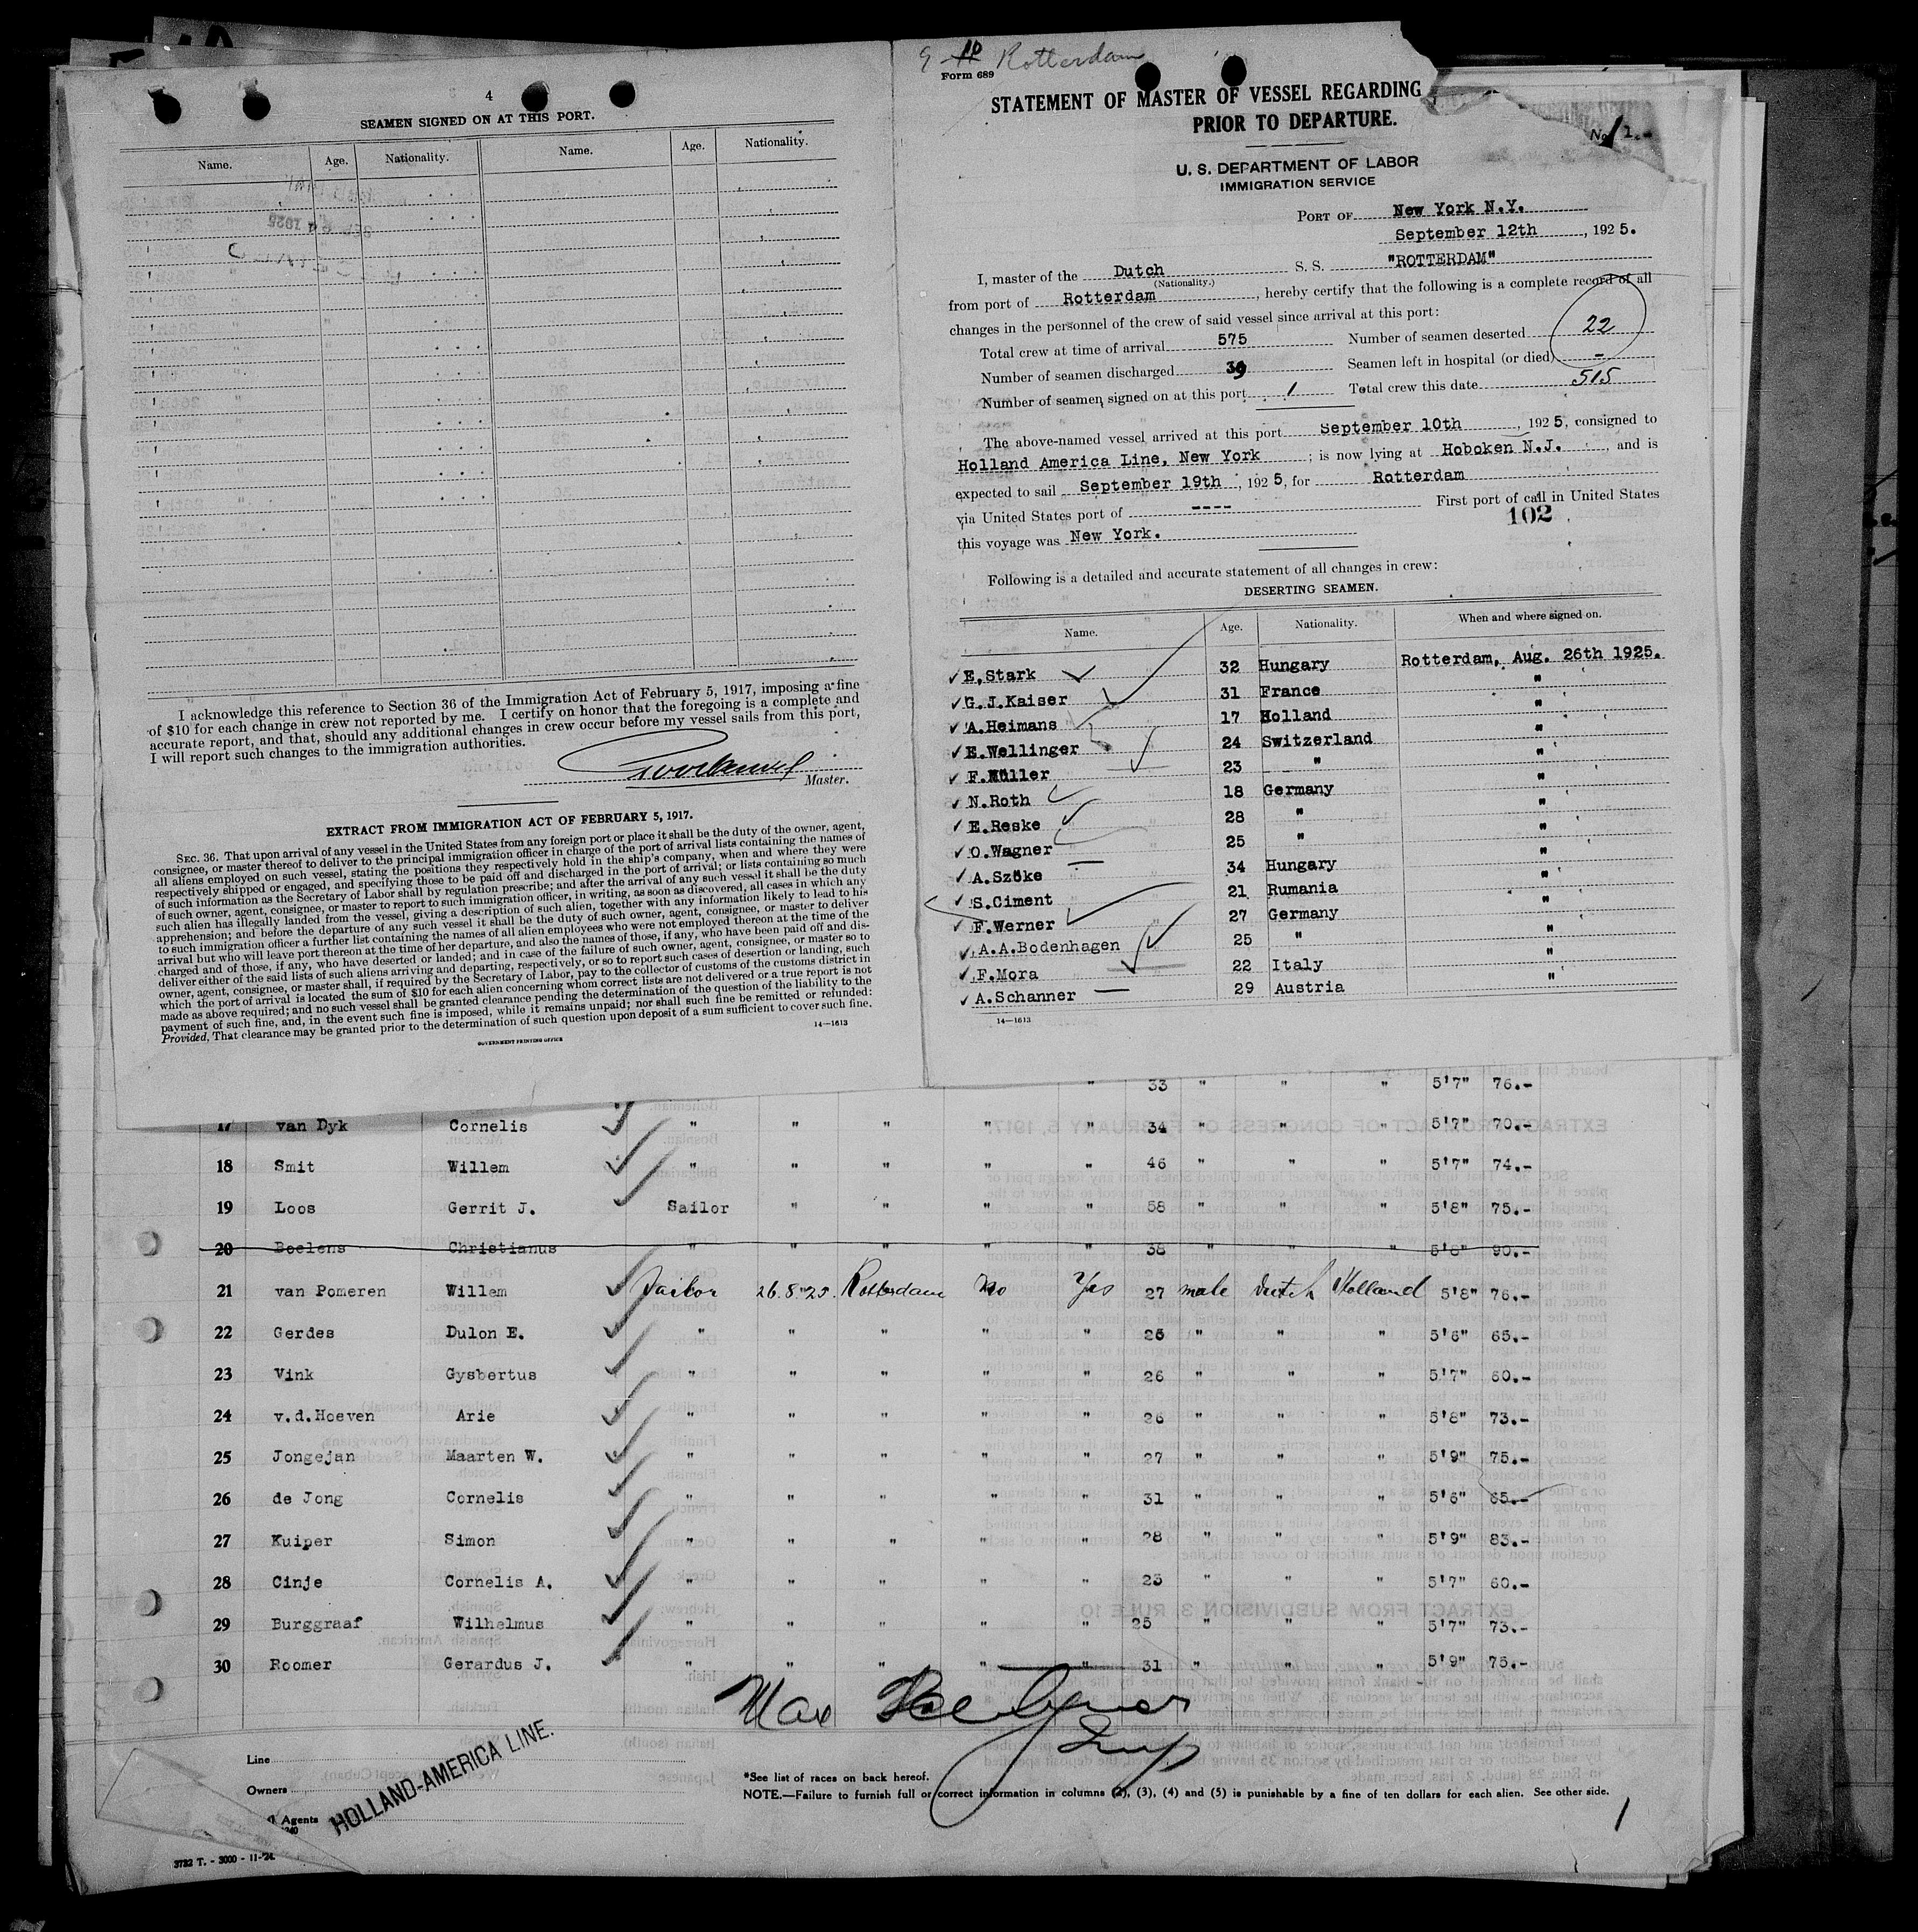 4
SEAMEN SIGNED ON AT THIS PORT.
Name. Age. Nationality. Name. Age. Nationality.
I acknowledge this reference to Section 36 of the Immigration Act of February 5, 1917, imposing a fine
of $10 for each change in crew not reported by me. I certify on honor that the foregoing is a complete and
accurate report, and that, should any additional changes in crew occur before my vessel sails from this port,
I will report such changes to the immigration authorities.
Master.
EXTRACT FROM IMMIGRATION ACT OF FEBRUARY 5, 1917.
SEC. 36. That upon arrival of any vessel in the United States from any foreign port or place it shall be the duty of the owner, agent,
consignee, or master thereof to deliver to the principal immigration officer in charge of the port of arrival lists containing the names of
all aliens employed on such vessel, stating the positions they respectively hold in the ship's company, when and where they were
respectively shipped or engaged, and specifying those to be paid off and discharged in the port of arrival; or lists containing so much
of such information as the Secretary of Labor shall by regulation prescribe; and after the arrival of any such vessel it shall be the duty
of such owner, agent, consignee, or master to report to such immigration officer, in writing, as soon as discovered, all cases in which any
such alien has illegally landed from the vessel, giving a description of such alien, together with any information likely to lead to his
apprehension; and before the departure of any such vessel it shall be the duty of such owner, agent, consignee, or master to deliver
to such immigration officer a further list containing the names of all alien employees who were not employed thereon at the time of the
arrival but who will leave port thereon at the time of her departure, and also the names of those, if any, who have been paid off and dis-
charged and of those, if any, who have deserted or landed; and in case of the failure of such owner, agent, consignee, or master so to
deliver either of the said lists of such aliens arriving and departing, respectively, or so to report such cases of desertion or landing, such
owner, agent, consignee, or master shall, if required by the Secretary of Labor, pay to the collector of customs of the customs district in
which the port of arrival is located the sum of $10 for each alien concerning whom correct lists are not delivered or a true report is not
made as above required; and no such vessel shall be granted clearance pending the determination of the question of the liability to the
payment of such fine, and, in the event such fine is imposed, while it remains unpaid; nor shall such fine be remitted or refunded:
Provided, That clearance may be granted prior to the determination of such question upon deposit of a sum sufficient to cover such fine.
14—1613
GOVERNMENT PRINTING OFFICE
Rotterdam
Form 689
STATEMENT OF MASTER OF VESSEL REGARDING
PRIOR TO DEPARTURE.
No. 1.-
U. S. DEPARTMENT OF LABOR
IMMIGRATION SERVICE
PORT OF New York N.Y.
September 12th, 1925.
I, master of the Dutch S. S. "ROTTERDAM"
(Nationality.)
from port of Rotterdam, hereby certify that the following is a complete record of all
changes in the personnel of the crew of said vessel since arrival at this port:
Total crew at time of arrival 575 Number of seamen deserted 22
Number of seamen discharged 39 Seamen left in hospital (or died) -
Number of seamen signed on at this port 1 Total crew this date 515
The above-named vessel arrived at this port September 10th, 1925, consigned to
Holland America Line, New York; is now lying at Hoboken N.J., and is
expected to sail September 19th, 1925, for Rotterdam
via United States port of ---- First port of call in United States
102
this voyage was New York.
Following is a detailed and accurate statement of all changes in crew:
DESERTING SEAMEN.
Name. Age. Nationality. When and where signed on.
E.Stark 32 Hungary Rotterdam, Aug. 26th 1925.
G.J.Kaiser 31 France "
A.Heimans 17 Holland "
E.Wellinger 24 Switzerland "
F.Müller 23 " "
N.Roth 18 Germany "
E.Reske 28 " "
O.Wagner 25 " "
A.Szöke 34 Hungary "
S.Ciment 21 Rumania "
F.Werner 27 Germany "
A.A.Bodenhagen 25 " "
F.Mora 22 Italy "
A.Schanner 29 Austria "
14—1613
" 33 " " " 5'7" 76.-
17 van Dyk Cornelis " " " " " 34 " " " 5'7" 70.-
18 Smit Willem " " " " " 46 " " " 5'7" 74.-
19 Loos Gerrit J. Sailor " " " " 58 " " " 5'8" 75.-
20 Boelens Christianus " " " " " 38 " " " 5'8" 90.-
21 van Pomeren Willem Sailor 26.8.25. Rotterdam No Yes 27 male Dutch Holland 5'8" 76.-
22 Gerdes Dulon E. " " " " " 26 " " " 5'6" 65.-
23 Vink Gysbertus " " " " " 26 " " " 5'7" 60.-
24 v.d.Hoeven Arie " " " " " 26 " " " 5'8" 73.-
25 Jongejan Maarten W. " " " " " 27 " " " 5'9" 75.-
26 de Jong Cornelis " " " " " 31 " " " 5'6" 65.-
27 Kuiper Simon " " " " " 28 " " " 5'9" 83.-
28 Cinje Cornelis A. " " " " " 25 " " " 5'7" 60.-
29 Burggraaf Wilhelmus " " " " " 25 " " " 5'7" 73.-
30 Roomer Gerardus J. " " " " " 31 " " " 5'9" 75.-
Max
Line
Owners
Agents
HOLLAND-AMERICA LINE.
*See list of races on back hereof.
NOTE.—Failure to furnish full or correct information in columns (2), (3), (4) and (5) is punishable by a fine of ten dollars for each alien. See other side.
3732 T. - 3000 - 11-'24.